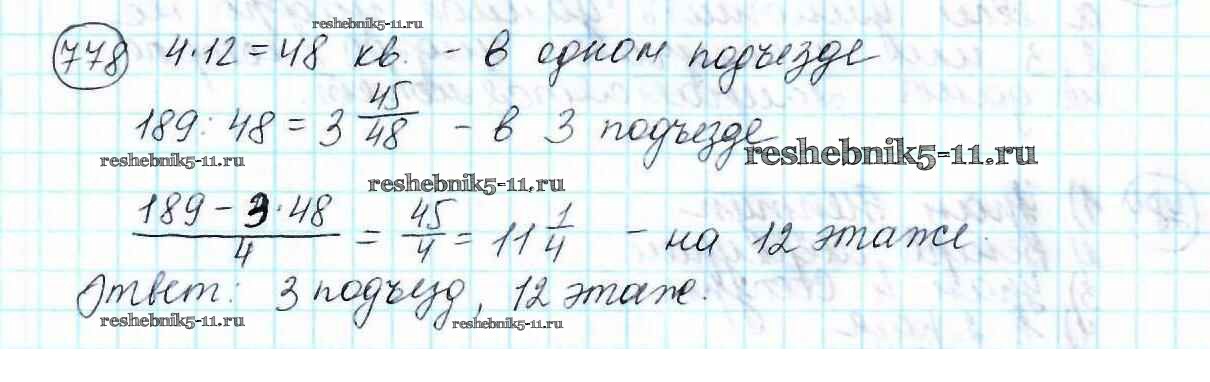 reshebnik5-11.ru
778 4·12=48 кв. - в одном подъезде
189:48=3 45/48 - в 3 подъезде
reshebnik5-11.ru
reshebnik5-11.ru
reshebnik5-11.ru
(189-3·48)/4 = 45/4 = 11 1/4 - на 12 этаже.
Ответ: 3 подъезд, 12 этаж.
reshebnik5-11.ru
reshebnik5-11.ru